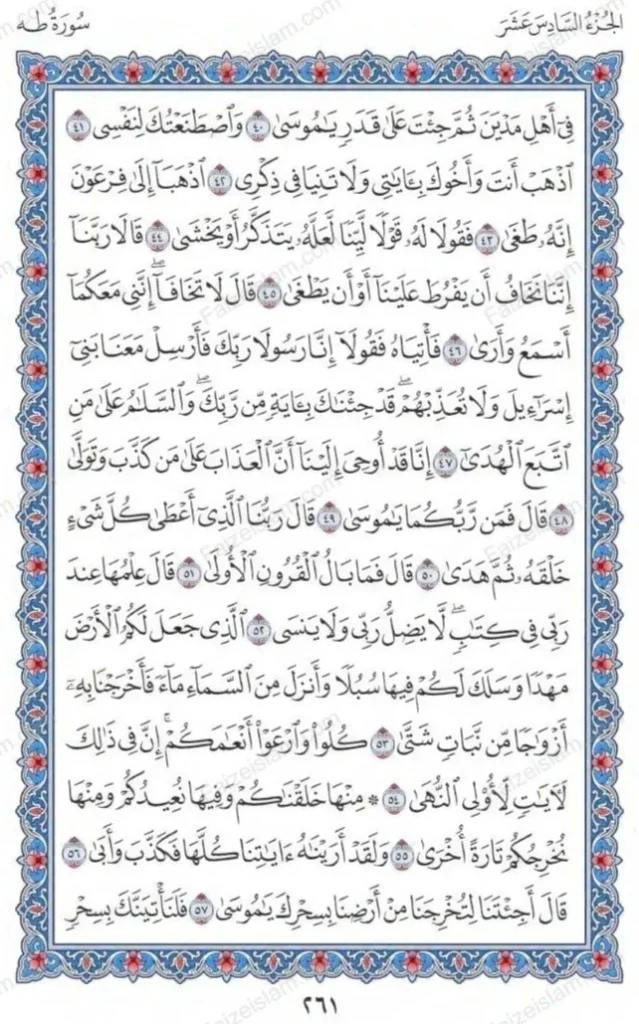 الجُزْءُ السَّادِسَ عَشَرَ
سُورَةُ طه
فِىٓ أَهْلِ مَدْيَنَ ثُمَّ جِئْتَ عَلَىٰ قَدَرٍ يَٰمُوسَىٰ ٤٠ وَٱصْطَنَعْتُكَ لِنَفْسِى ٤١
ٱذْهَبْ أَنتَ وَأَخُوكَ بِـَٔايَٰتِى وَلَا تَنِيَا فِى ذِكْرِى ٤٢ ٱذْهَبَآ إِلَىٰ فِرْعَوْنَ
إِنَّهُۥ طَغَىٰ ٤٣ فَقُولَا لَهُۥ قَوْلًا لَّيِّنًا لَّعَلَّهُۥ يَتَذَكَّرُ أَوْ يَخْشَىٰ ٤٤ قَالَا رَبَّنَآ
إِنَّنَا نَخَافُ أَن يَفْرُطَ عَلَيْنَآ أَوْ أَن يَطْغَىٰ ٤٥ قَالَ لَا تَخَافَآ ۖ إِنَّنِى مَعَكُمَآ
أَسْمَعُ وَأَرَىٰ ٤٦ فَأْتِيَاهُ فَقُولَآ إِنَّا رَسُولَا رَبِّكَ فَأَرْسِلْ مَعَنَا بَنِىٓ
إِسْرَٰٓءِيلَ وَلَا تُعَذِّبْهُمْ ۖ قَدْ جِئْنَٰكَ بِـَٔايَةٍ مِّن رَّبِّكَ ۖ وَٱلسَّلَٰمُ عَلَىٰ مَنِ
ٱتَّبَعَ ٱلْهُدَىٰٓ ٤٧ إِنَّا قَدْ أُوحِىَ إِلَيْنَآ أَنَّ ٱلْعَذَابَ عَلَىٰ مَن كَذَّبَ وَتَوَلَّىٰ
٤٨ قَالَ فَمَن رَّبُّكُمَا يَٰمُوسَىٰ ٤٩ قَالَ رَبُّنَا ٱلَّذِىٓ أَعْطَىٰ كُلَّ شَىْءٍ
خَلْقَهُۥ ثُمَّ هَدَىٰ ٥٠ قَالَ فَمَا بَالُ ٱلْقُرُونِ ٱلْأُولَىٰ ٥١ قَالَ عِلْمُهَا عِندَ
رَبِّى فِى كِتَٰبٍ ۖ لَّا يَضِلُّ رَبِّى وَلَا يَنسَى ٥٢ ٱلَّذِى جَعَلَ لَكُمُ ٱلْأَرْضَ
مَهْدًا وَسَلَكَ لَكُمْ فِيهَا سُبُلًا وَأَنزَلَ مِنَ ٱلسَّمَآءِ مَآءً فَأَخْرَجْنَا بِهِۦٓ
أَزْوَٰجًا مِّن نَّبَاتٍ شَتَّىٰ ٥٣ كُلُوا۟ وَٱرْعَوْا۟ أَنْعَٰمَكُمْ ۗ إِنَّ فِى ذَٰلِكَ
لَءَايَٰتٍ لِّأُو۟لِى ٱلنُّهَىٰ ٥٤ * مِنْهَا خَلَقْنَٰكُمْ وَفِيهَا نُعِيدُكُمْ وَمِنْهَا
نُخْرِجُكُمْ تَارَةً أُخْرَىٰ ٥٥ وَلَقَدْ أَرَيْنَٰهُ ءَايَٰتِنَا كُلَّهَا فَكَذَّبَ وَأَبَىٰ ٥٦
قَالَ أَجِئْتَنَا لِتُخْرِجَنَا مِنْ أَرْضِنَا بِسِحْرِكَ يَٰمُوسَىٰ ٥٧ فَلَنَأْتِيَنَّكَ بِسِحْرٍ
٢٦١
Faizeislam.com